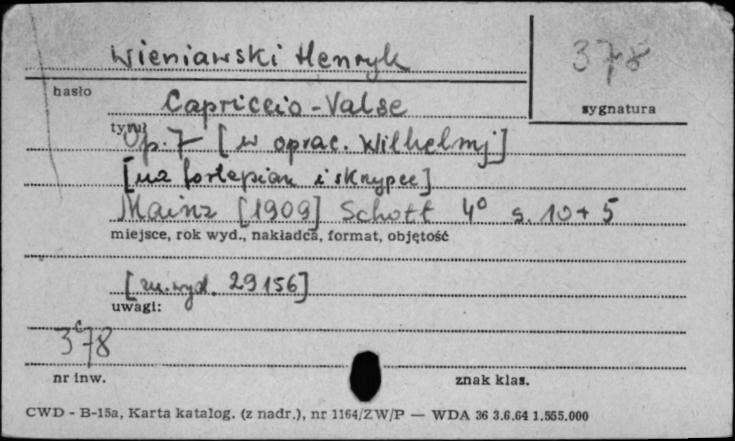 Wieniawski Henryk
378
hasło
Capriccio-Valse
sygnatura
tytuł
Op. 7 [w oprac. Wilhelmj]
[na fortepian i skrzypce]
Mainz [1909] Schott 4° s. 10+5
miejsce, rok wyd., nakładca, format, objętość
[nr. wyd. 29156]
uwagi:
378
nr inw.
znak klas.
CWD - B-15a, Karta katalog. (z nadr.), nr 1164/ZW/P — WDA 36 3.6.64 1.555.000